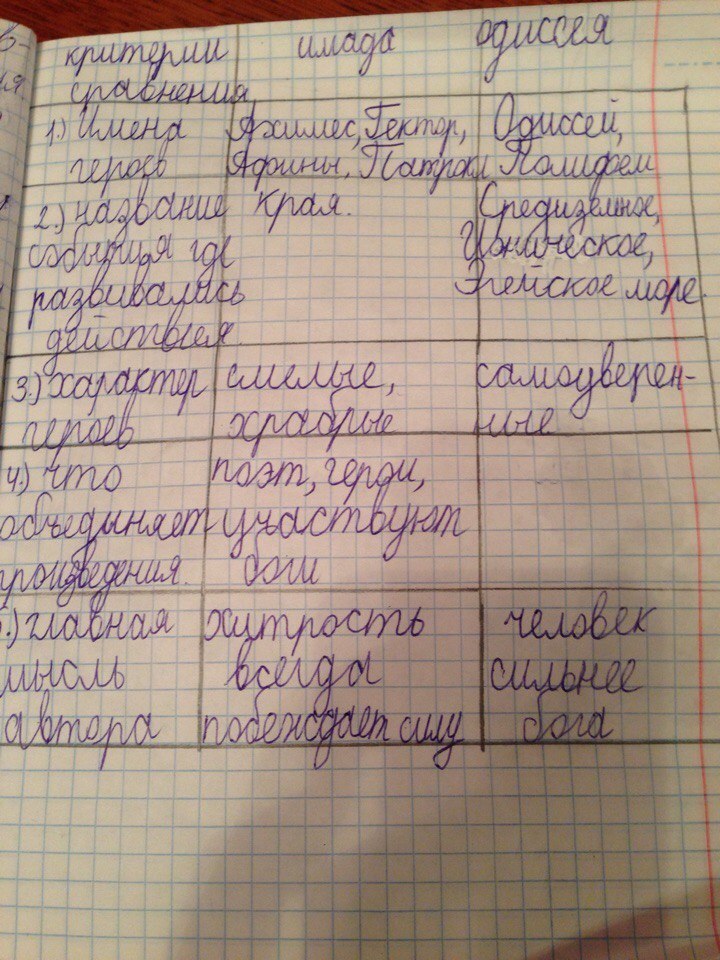 критерии имада одиссея
сравнения
1.) Имена Ахимес, Гектор, Одиссей,
героев Афины, Патрокл Полифем
2.) название края. Средиземное,
события где Ионическое,
развивалась Эгейское море.
действия
3.) характер смелые, самоуверен-
героев храбрые ные
4.) что поэт, герои,
объединяет участвуют
произведения. боги
.) главная хитрость человек
мысль всегда сильнее
автора побеждает силу бога